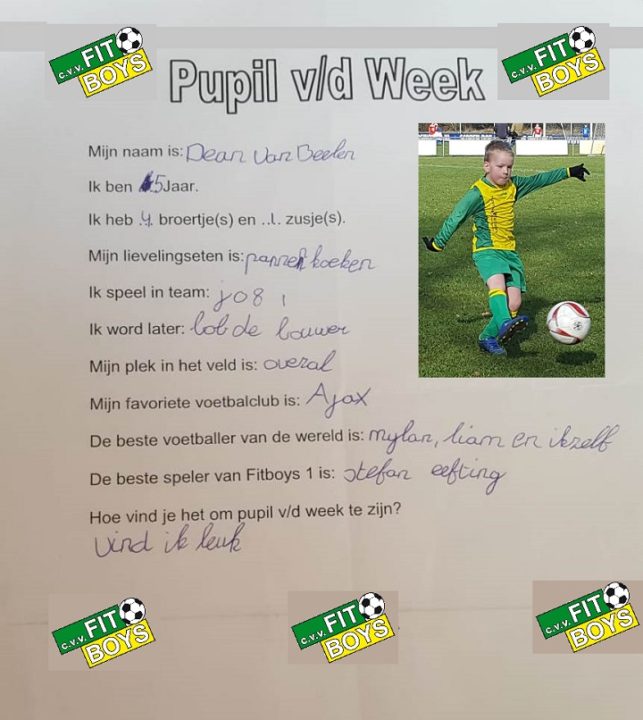 c.v.v. FIT BOYS
c.v.v. FIT BOYS
Pupil v/d Week
Mijn naam is: Dean van Beelen
Ik ben 5 Jaar.
Ik heb .4. broertje(s) en ..1. zusje(s).
Mijn lievelingseten is: pannenkoeken
Ik speel in team: jo8 1
Ik word later: bob de bouwer
Mijn plek in het veld is: overal
Mijn favoriete voetbalclub is: Ajax
De beste voetballer van de wereld is: mylan, liam en ikzelf
De beste speler van Fitboys 1 is: stefan eefting
Hoe vind je het om pupil v/d week te zijn?
vind ik leuk
c.v.v. FIT BOYS
c.v.v. FIT BOYS
c.v.v. FIT BOYS